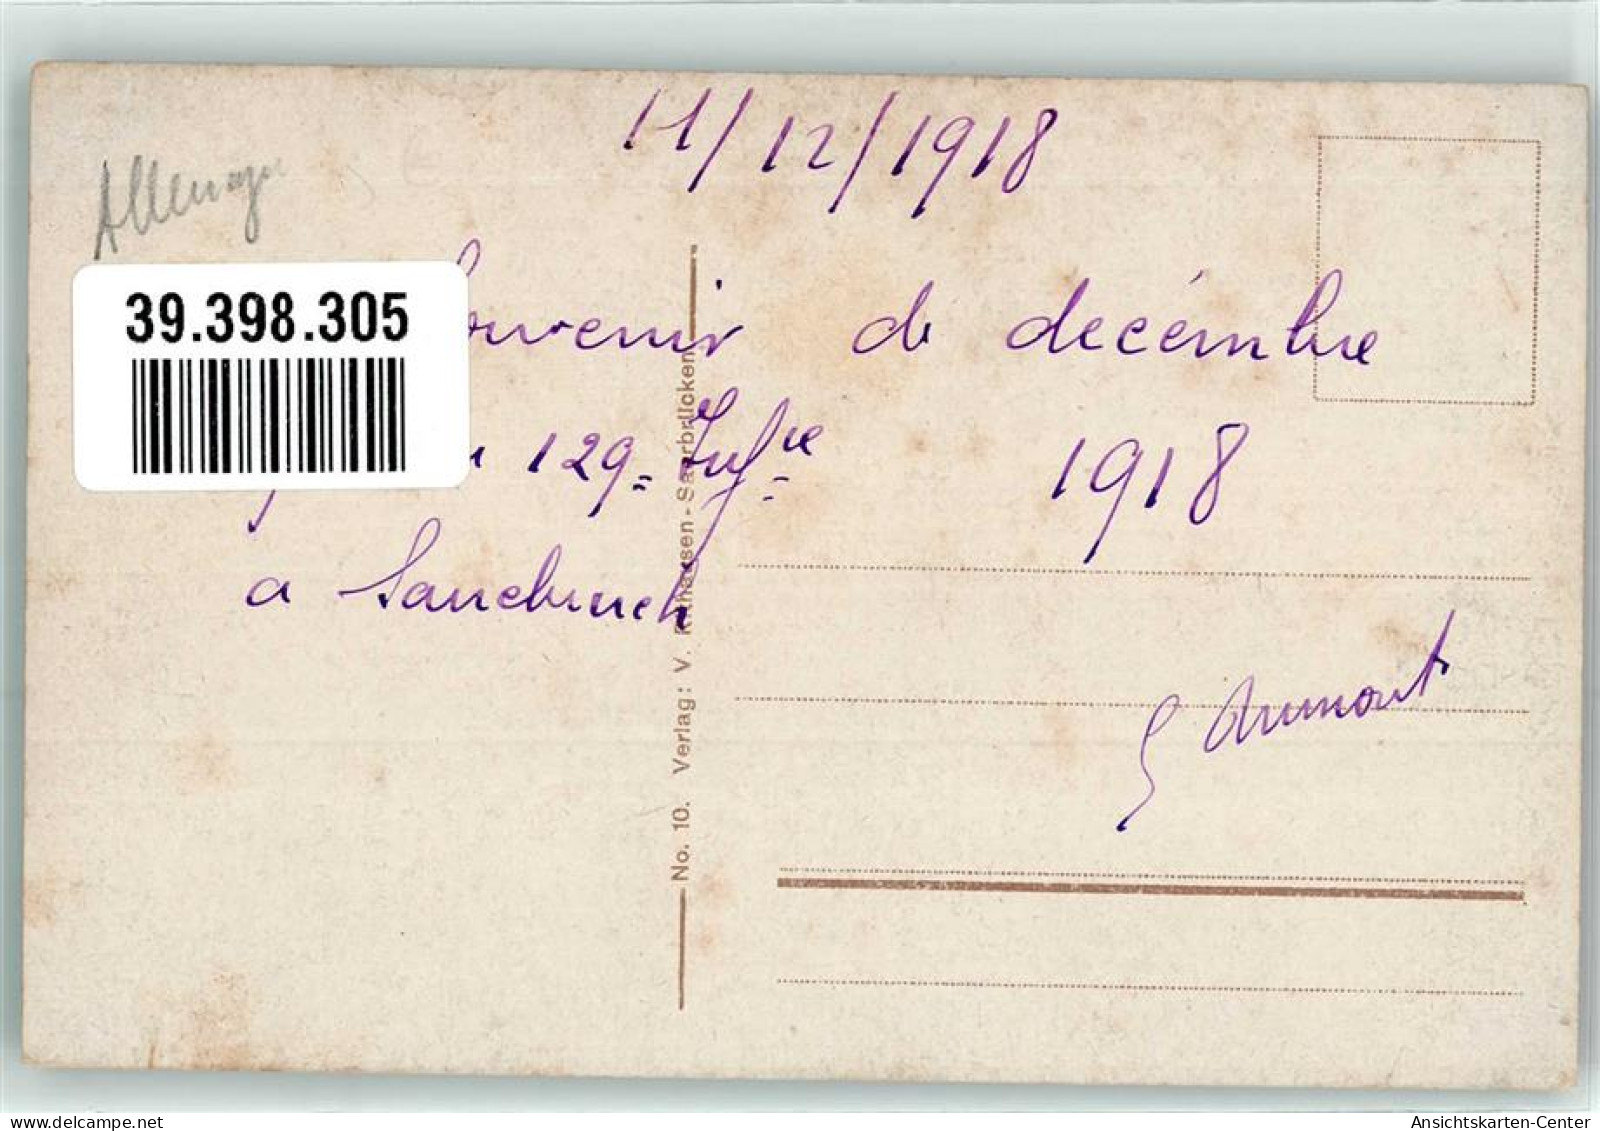 11/12/1918
Allemagne
39.398.305
Souvenir de decémbre
129= Infie 1918
a Sarrebruck
G Dumont
No. 10. Verlag: V. - Saarbrücken
delcampe.net
Ansichtskarten-Center